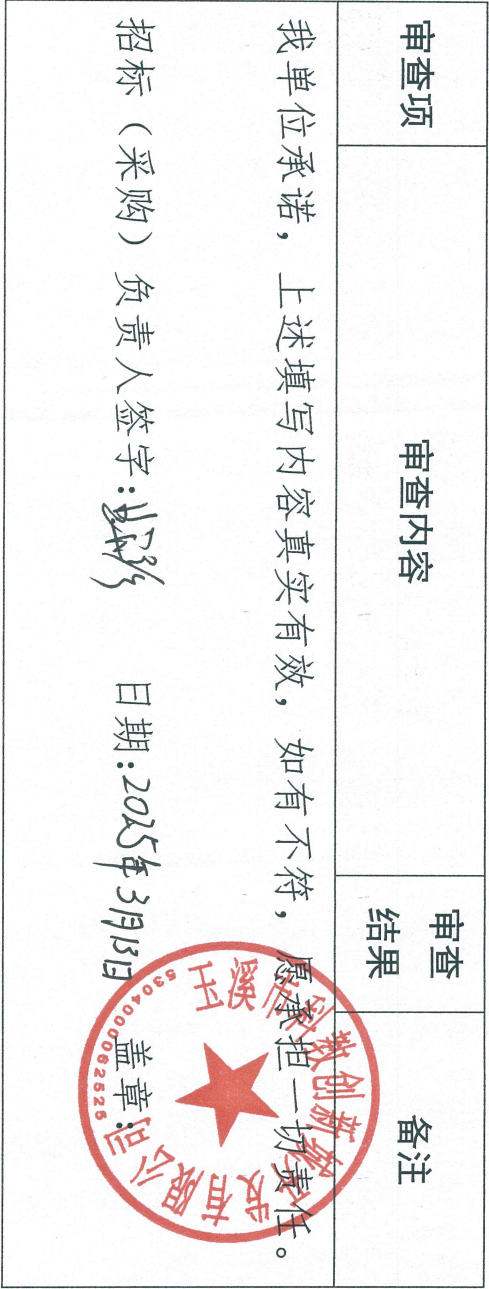 审查项 审查内容 审查结果 备注
我单位承诺，上述填写内容真实有效，如有不符，愿承担一切责任。
招标（采购）负责人签字： 日期：2025年3月13日 盖章：
玉溪市科教创新城 发有限公司
5304000062625